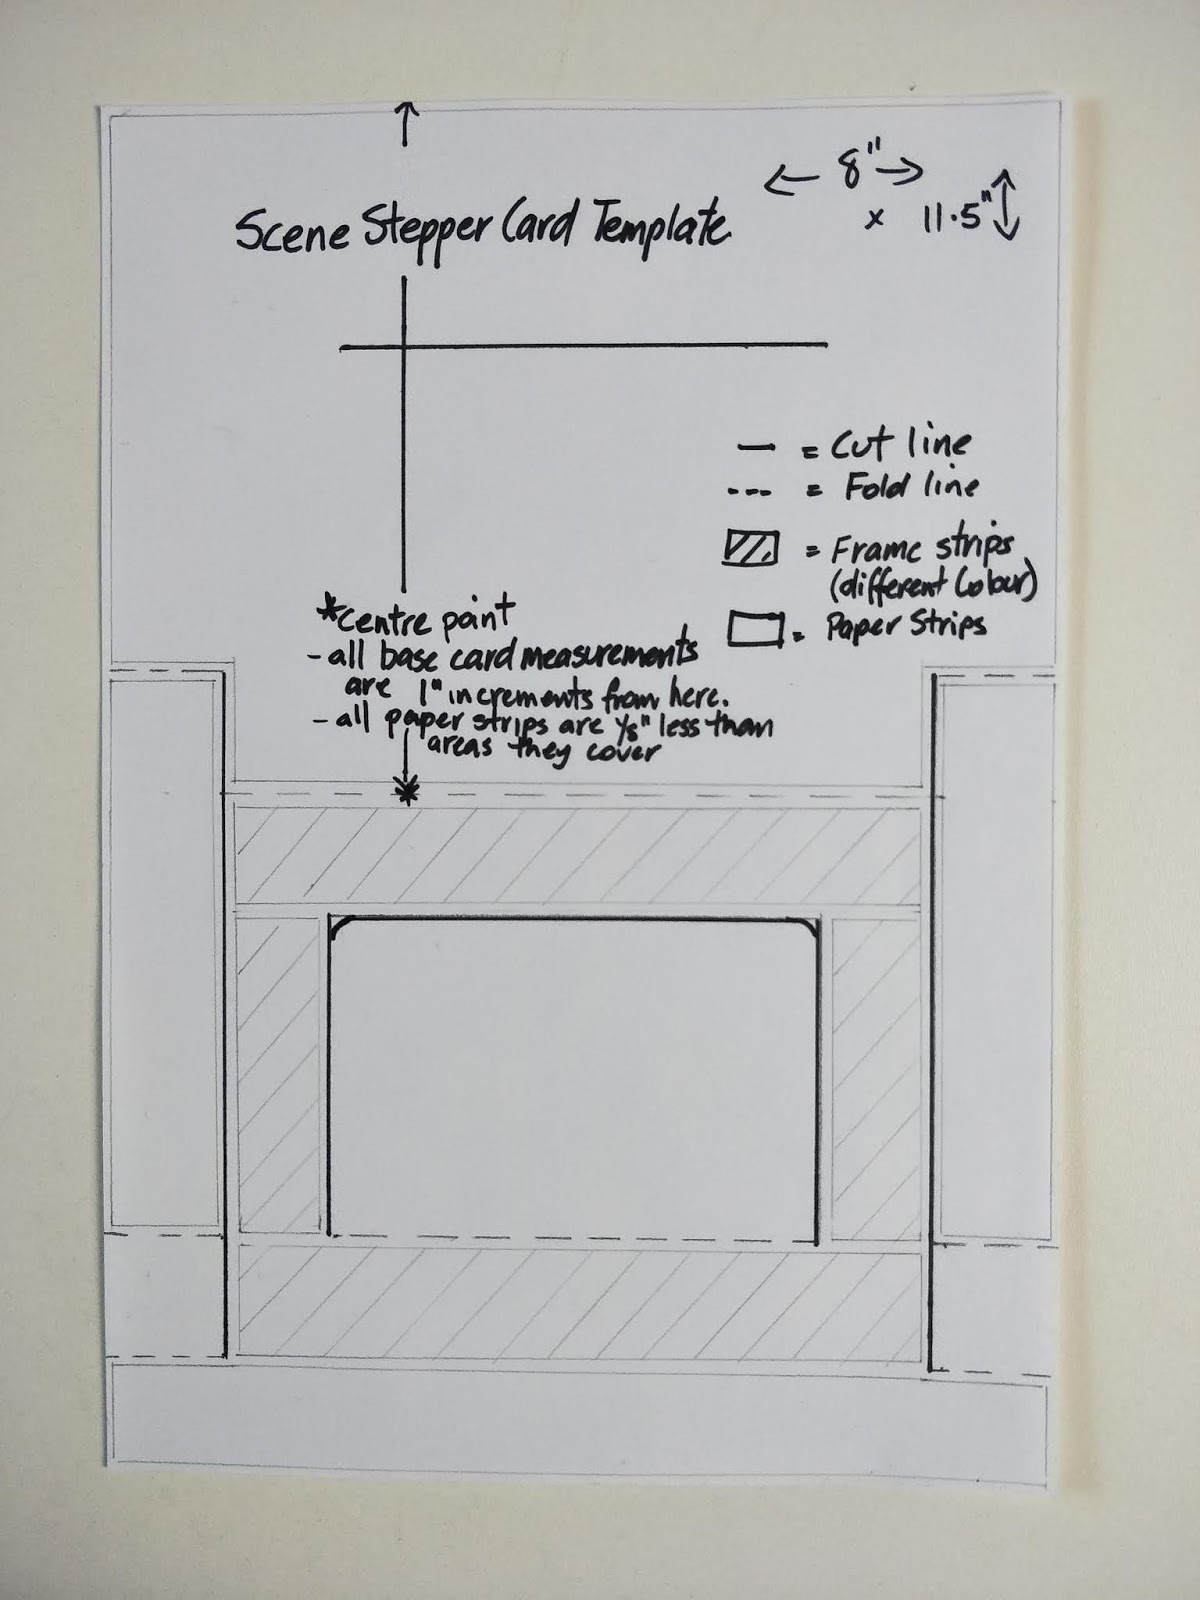 8"
x 11.5"
Scene Stepper Card Template
— = Cut line
--- = Fold line
= Frame strips
(different Colour)
= Paper Strips
*centre point
- all base card measurements
are 1" increments from here.
- all paper strips are 1/8" less than
areas they cover
*